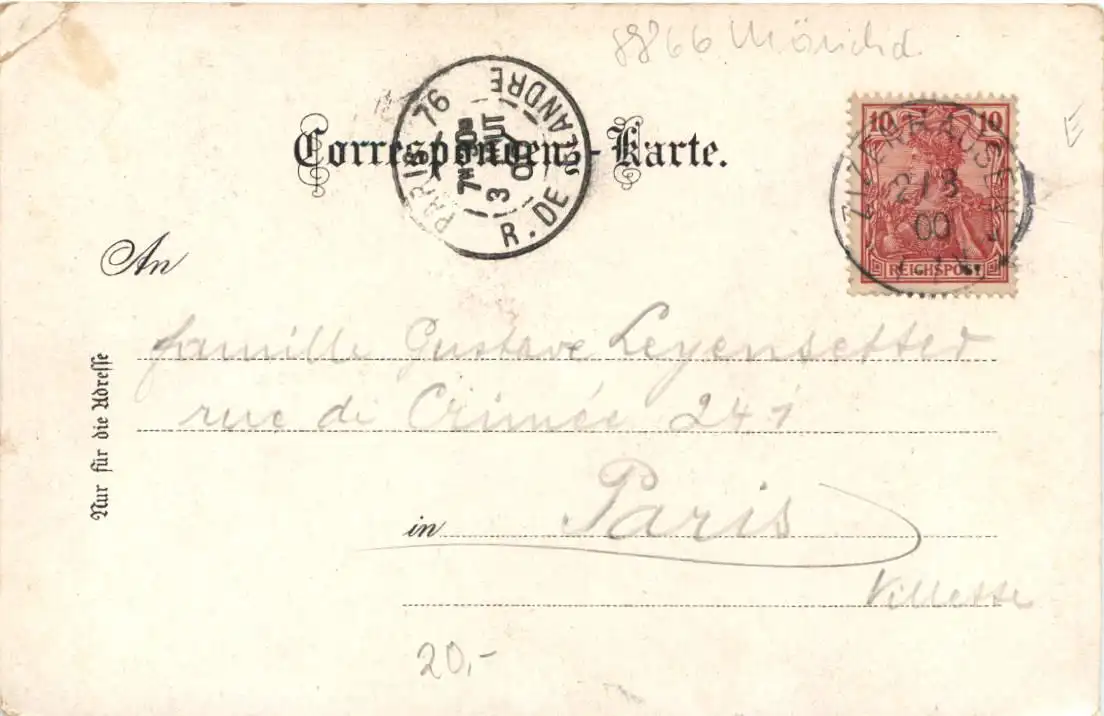 88866
Correspondenz-Karte.
PARIS 76
7 M 30
3 AOUT
00
R. DE
10 10
ZIZENHAUSEN
2/8
00
REICHSPOST
E
An
famille Gustave Leyensetter
rue de Crimée 241
in Paris
Villette
Nur für die Adresse
20,-